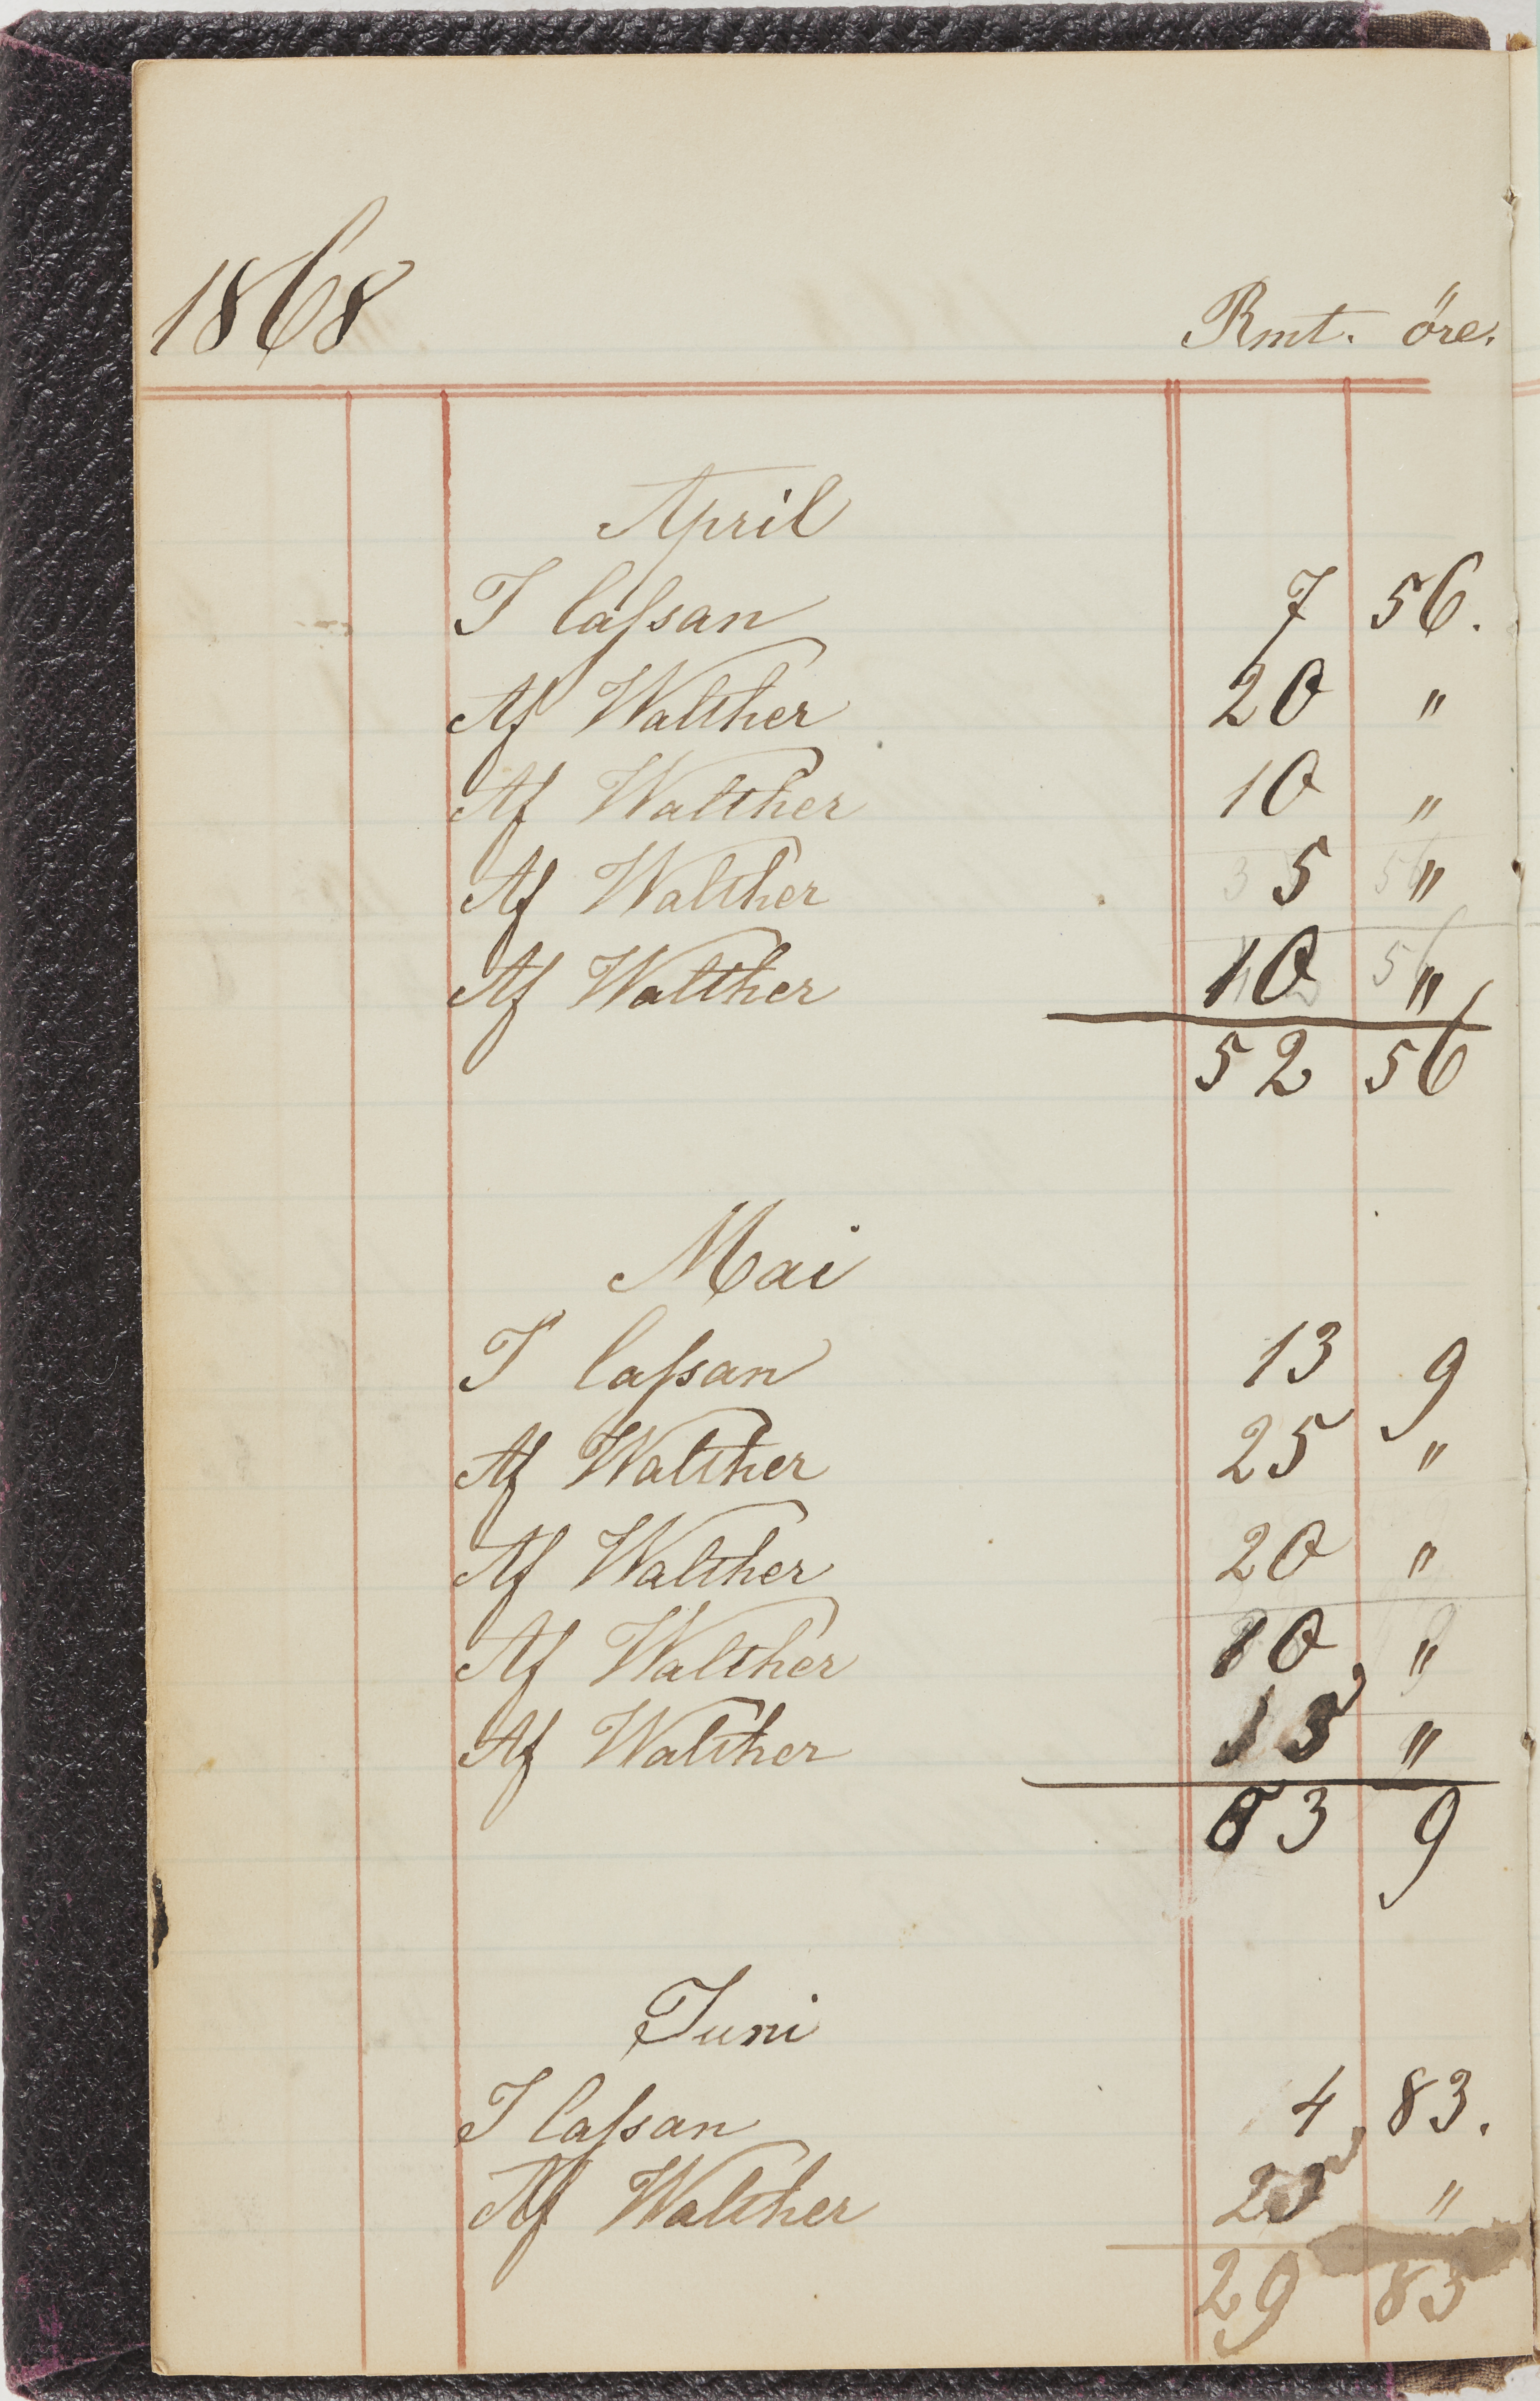 1868 Rmt. öre.
April
I Caſsan 7 56.
Af Walther 20 "
Af Walther 10 "
Af Walther 5 "
Af Walther 10 "
52 56
Mai
I Caſsan 13 9
Af Walther 25 "
Af Walther 20 "
Af Walther 10 "
Af Walther 15 "
83 9
Juni
I Caſsan 4 83.
Af Walther 25 "
29 83